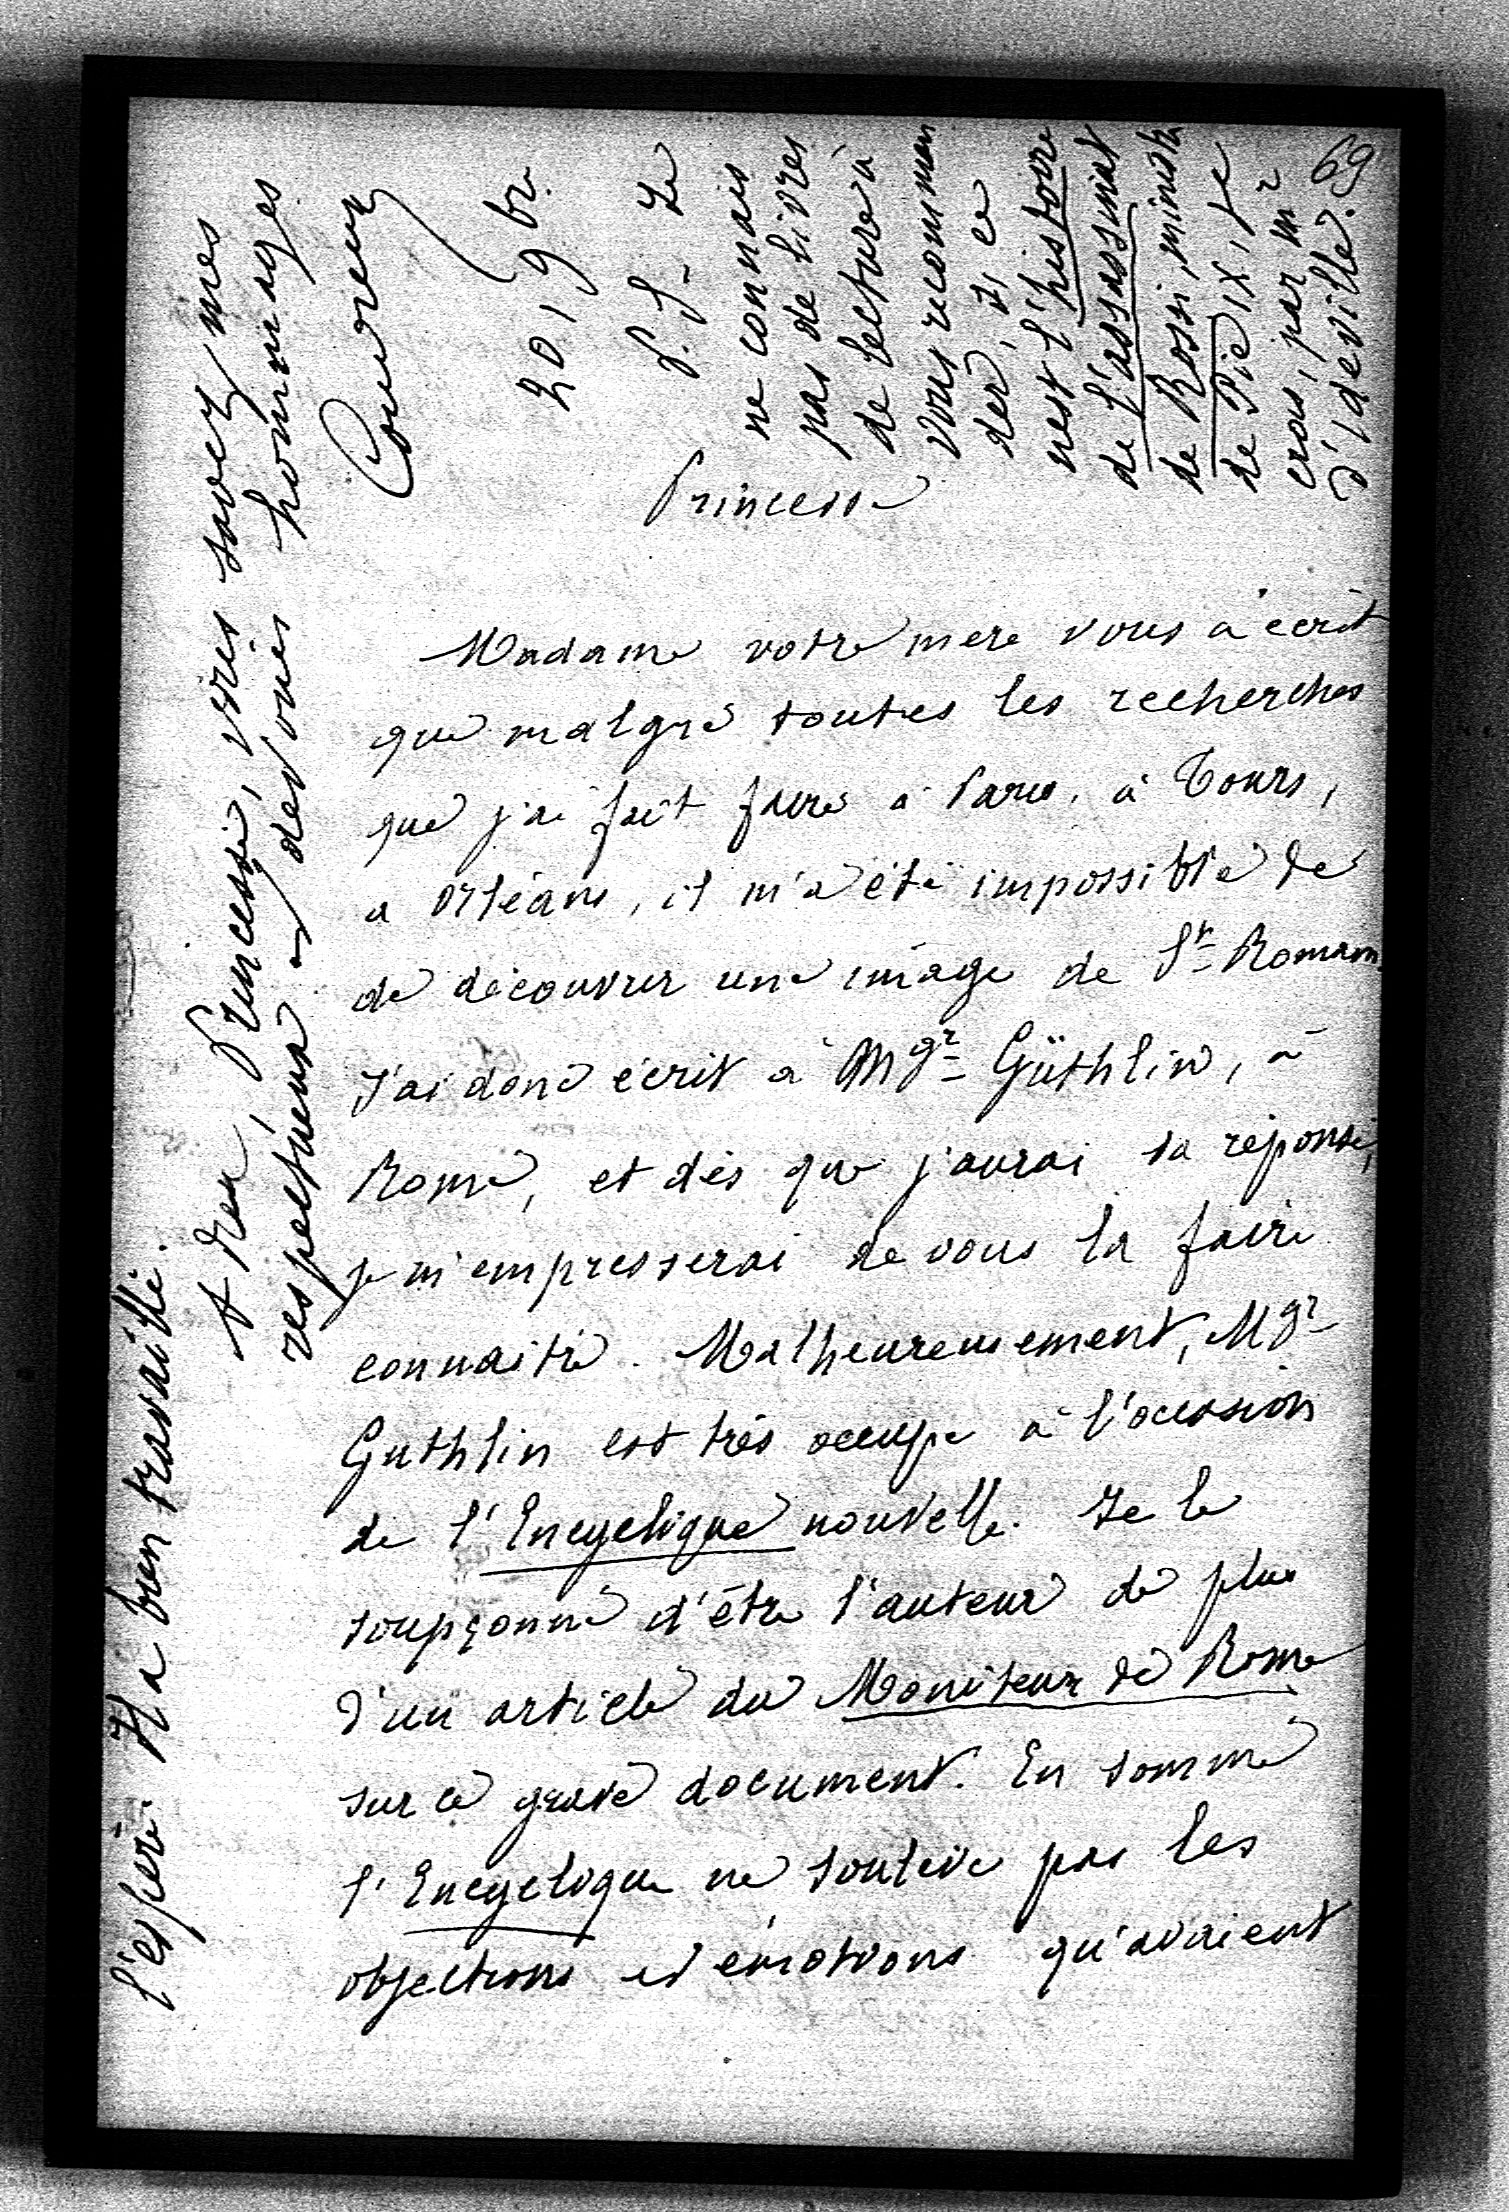 69
Princesse
Madame votre mere vous a écrit
que malgré toutes les recherches
que j'ai fait faire à Paris, à Tours,
a Orléans, il m'a été impossible de
de découvrir une image de St Romain.
J'ai donc écrit à Mgr Güthlin, à
Rome, et dès que j'aurai sa réponse,
je m'empresserai de vous la faire
connaitre. Malheureusement, Mgr
Guthlin est très occupé à l'occasion
de l'Encyclique nouvelle. Je le
soupçonne d'être l'auteur de plus
d'un article du Moniteur de Rome
sur ce grave document. En somme
l'Encyclique ne soulève pas les
objections et émotions qu'avaient
l'espère. Il a bien travaillé.
A Dieu, Princesse, vous savez mes
respectueux et dévoués hommages
Couvreux
20, 9br.
P.S- Je
ne connais
pas de livres
de lecture à
vous recomman
der, si ce
n'est l'histoire
de l'assassinat
de Rossi, ministre
de Pie IX, je
crois, par mr
d'Ideville.